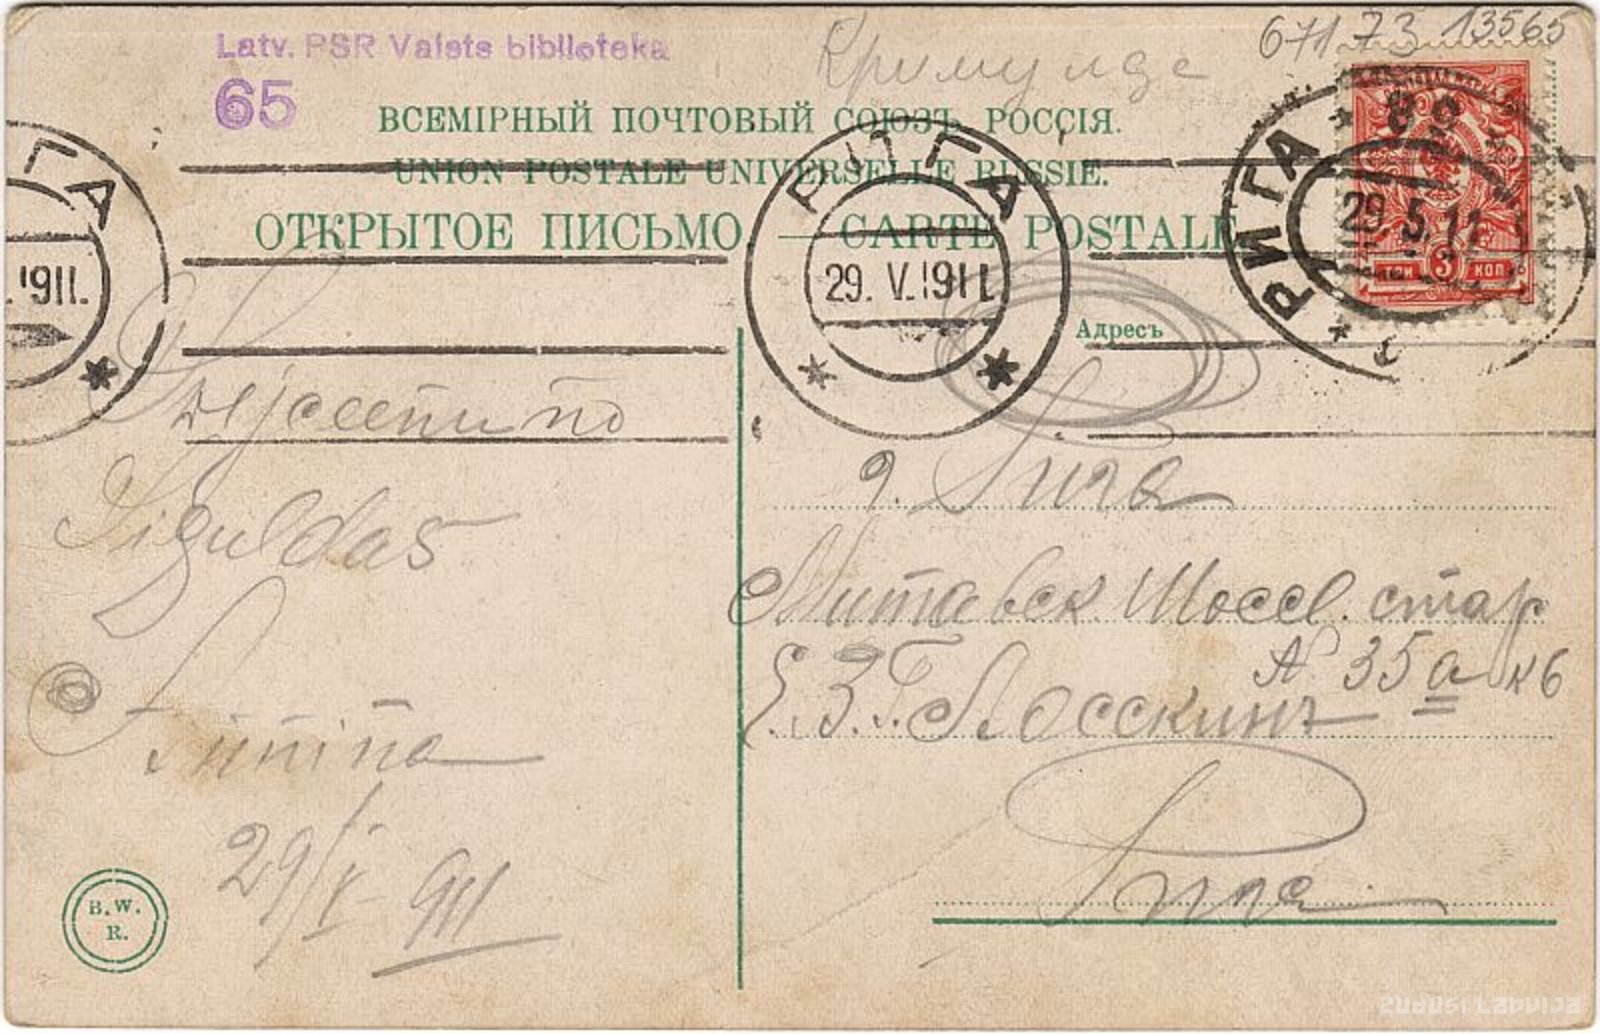 Latv. PSR Valsts biblioteka
65
Кримулде
67173 13565
ВСЕМІРНЫЙ ПОЧТОВЫЙ СОЮЗЪ РОССІЯ.
UNION POSTALE UNIVERSELLE RUSSIE.
ОТКРЫТОЕ ПИСЬМО — CARTE POSTALE
ГА
.1911.
РИГА
29.V.1911
РИГА
29.5.11
3 КОП
Адресъ
Sveiceenu no
Siguldas
29/V-911
B.W.
R.
г. Рига
Митавск. Шоссе. стар
№ 35а кв
Е.З.Г.
Рига
Zudusi Latvija